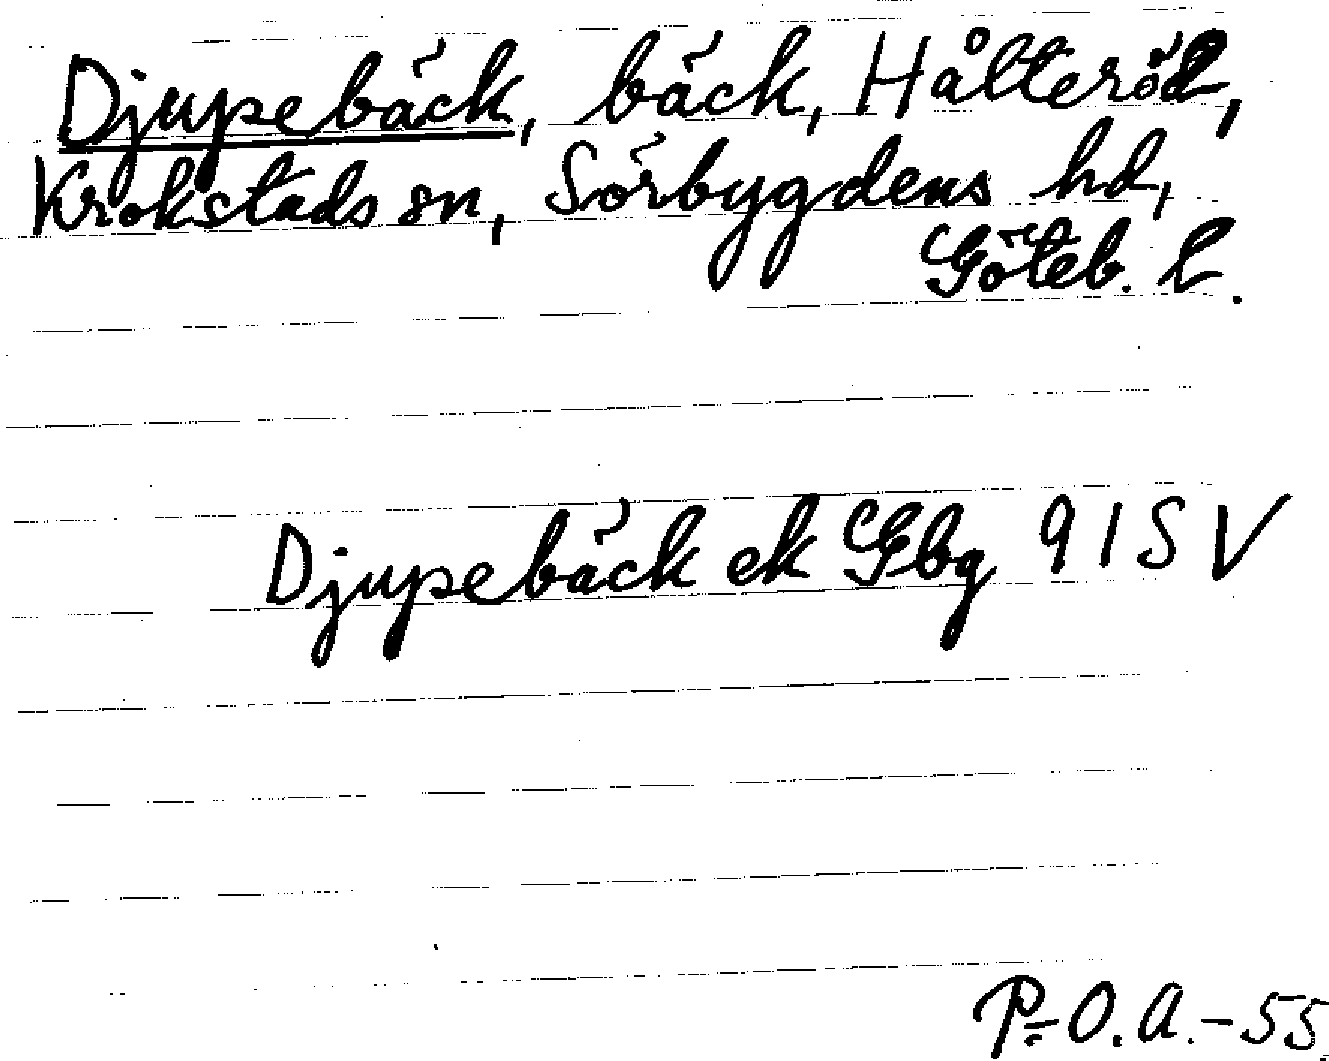 Djupebäck, bäck, Hålteröd,
Krokstads sn, Sörbygdens hd,
Göteb. l.
Djupebäck ek Gbg 91SV
P-O.A.-55.